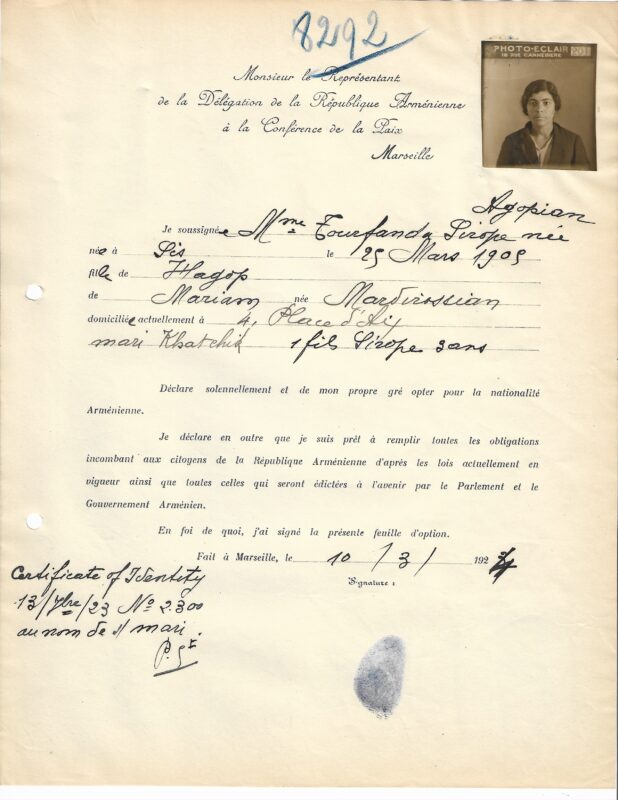 8292
PHOTO-ECLAIR
16 RUE CANNEBIERE
Monsieur le Représentant
de la Délégation de la République Arménienne
à la Conférence de la Paix
Marseille
Agopian
Je soussignée Mme Tourfanda Sirope née
née à Sis le 25 Mars 1905
fille de Hagop
de Mariam née Mardirossian
domiciliée actuellement à 4, Place d'Aix
mari Khatchik 1 fils Sirope 3 ans
Déclare solennellement et de mon propre gré opter pour la nationalité
Arménienne.
Je déclare en outre que je suis prêt à remplir toutes les obligations
incombant aux citoyens de la République Arménienne d'après les lois actuellement en
vigueur ainsi que toutes celles qui seront édictérs à l'avenir par le Parlement et le
Gouvernement Arménien.
En foi de quoi, j'ai signé la présente feuille d'option.
Fait à Marseille, le 10/3/ 1924
Signature :
Certificate of Identity
13/7bre/23 No 2.300
au nom de s/ mari.